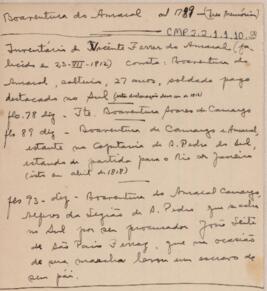 Boaventura do Amaral n. 1789 - (Tres Memórias)
CMP 2.2.1.1.10.3
Inventário de Vicente Ferrer do Amaral (fa-
lecido a 23-VII-1812) consta: Boaventura do
Amaral, solteiro, 27 anos, soldado pago
destacado no Sul
fls. 78 diz - Tte. Boaventura Soares de Camargo
fls 89 diz - Boaventura de Camargo e Amaral,
estante na Capitania de S. Pedro do Sul,
estando de partida para o Rio de Janeiro
(isto em abril de 1818)
fls 93 - diz - Boaventura do Amaral Camargo,
Alferes da Legião de S. Pedro, que se acha
no Sul por seu procurador José Leite
de São Paio Ferraz, que na ocasião
de sua marcha levou um escravo de
seu pai.